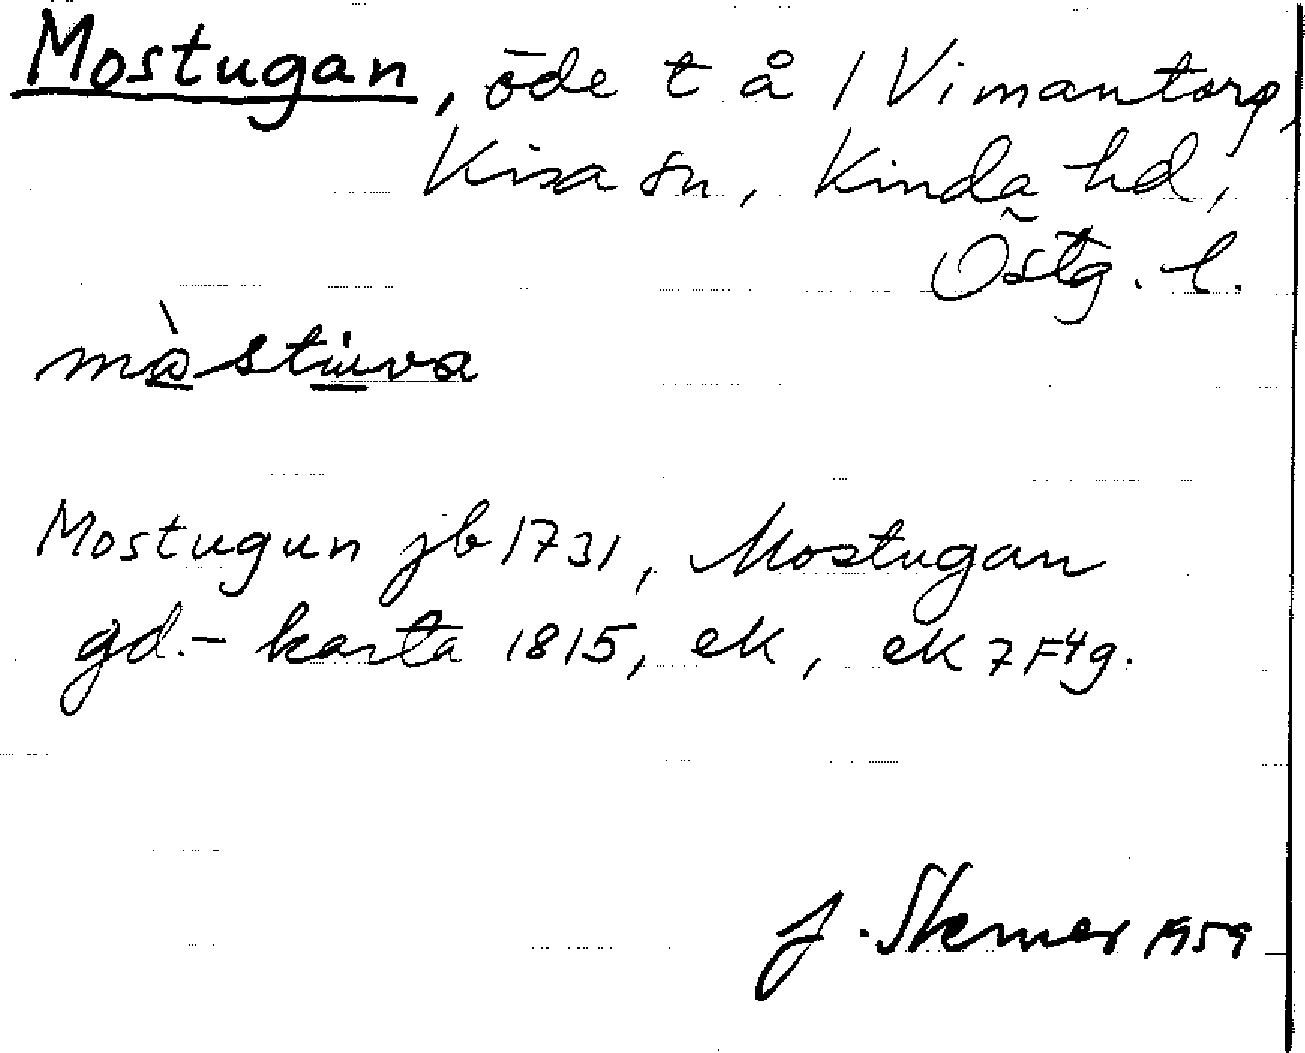 Mostugan, öde t å 1 Vimantorp,
Kisa sn, Kinda hd,
Östg. l.
Mostugun jb 1731, Mostugan
gd.-karta 1815, ek, ek 7F4g.
J. 1959